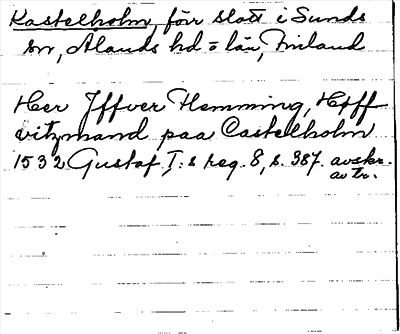 Kastelholm, förr slott i Sunds
sn, Ålands hd o län, Finland
Her Iffver Flemming, Höff
vitzmand paa Castelholm
1532 Gustaf I:s reg. 8, s. 387. avskr.
av tr.